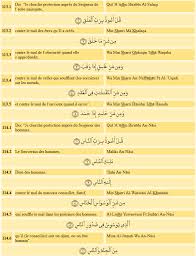 113.1 Dis: "Je cherche protection auprès du Seigneur de l'aube naissante, Qul 'A`ūdhu Birabbi Al-Falaqi
قُلْ أَعُوذُ بِرَبِّ الْفَلَقِ
113.2 contre le mal des êtres qu'Il a créés, Min Sharri Mā Khalaqa
مِن شَرِّ مَا خَلَقَ
113.3 contre le mal de l'obscurité quand elle s'approfondit, Wa Min Sharri Ghāsiqin 'Idhā Waqaba
وَمِن شَرِّ غَاسِقٍ إِذَا وَقَبَ
113.4 contre le mal de celles qui soufflent (les sorcières) sur les nœuds, Wa Min Sharri An-Naffāthāti Fī Al-`Uqadi
113.5 et contre le mal de l'envieux quand il envie". Wa Min Sharri Ĥāsidin 'Idhā Ĥasada
114.1 Dis: "Je cherche protection auprès du Seigneur des hommes. Qul 'A`ūdhu Birabbi An-Nāsi
قُلْ أَعُوذُ بِرَبِّ النَّاسِ
114.2 Le Souverain des hommes, Maliki An-Nāsi
مَلِكِ النَّاسِ
114.3 Dieu des hommes, 'Ilahi An-Nāsi
إِلَهِ النَّاسِ
114.4 contre le mal du mauvais conseiller, furtif, Min Sharri Al-Waswāsi Al-Khannāsi
114.5 qui souffle le mal dans les poitrines des hommes, Al-Ladhī Yuwaswisu Fī Şudūri An-Nāsi
114.6 qu'il (le conseiller) soit un djinn, ou un être humain". Mina Al-Jinnati Wa An-Nāsi
مِنَ الْجِنَّةِ وَالنَّاسِ